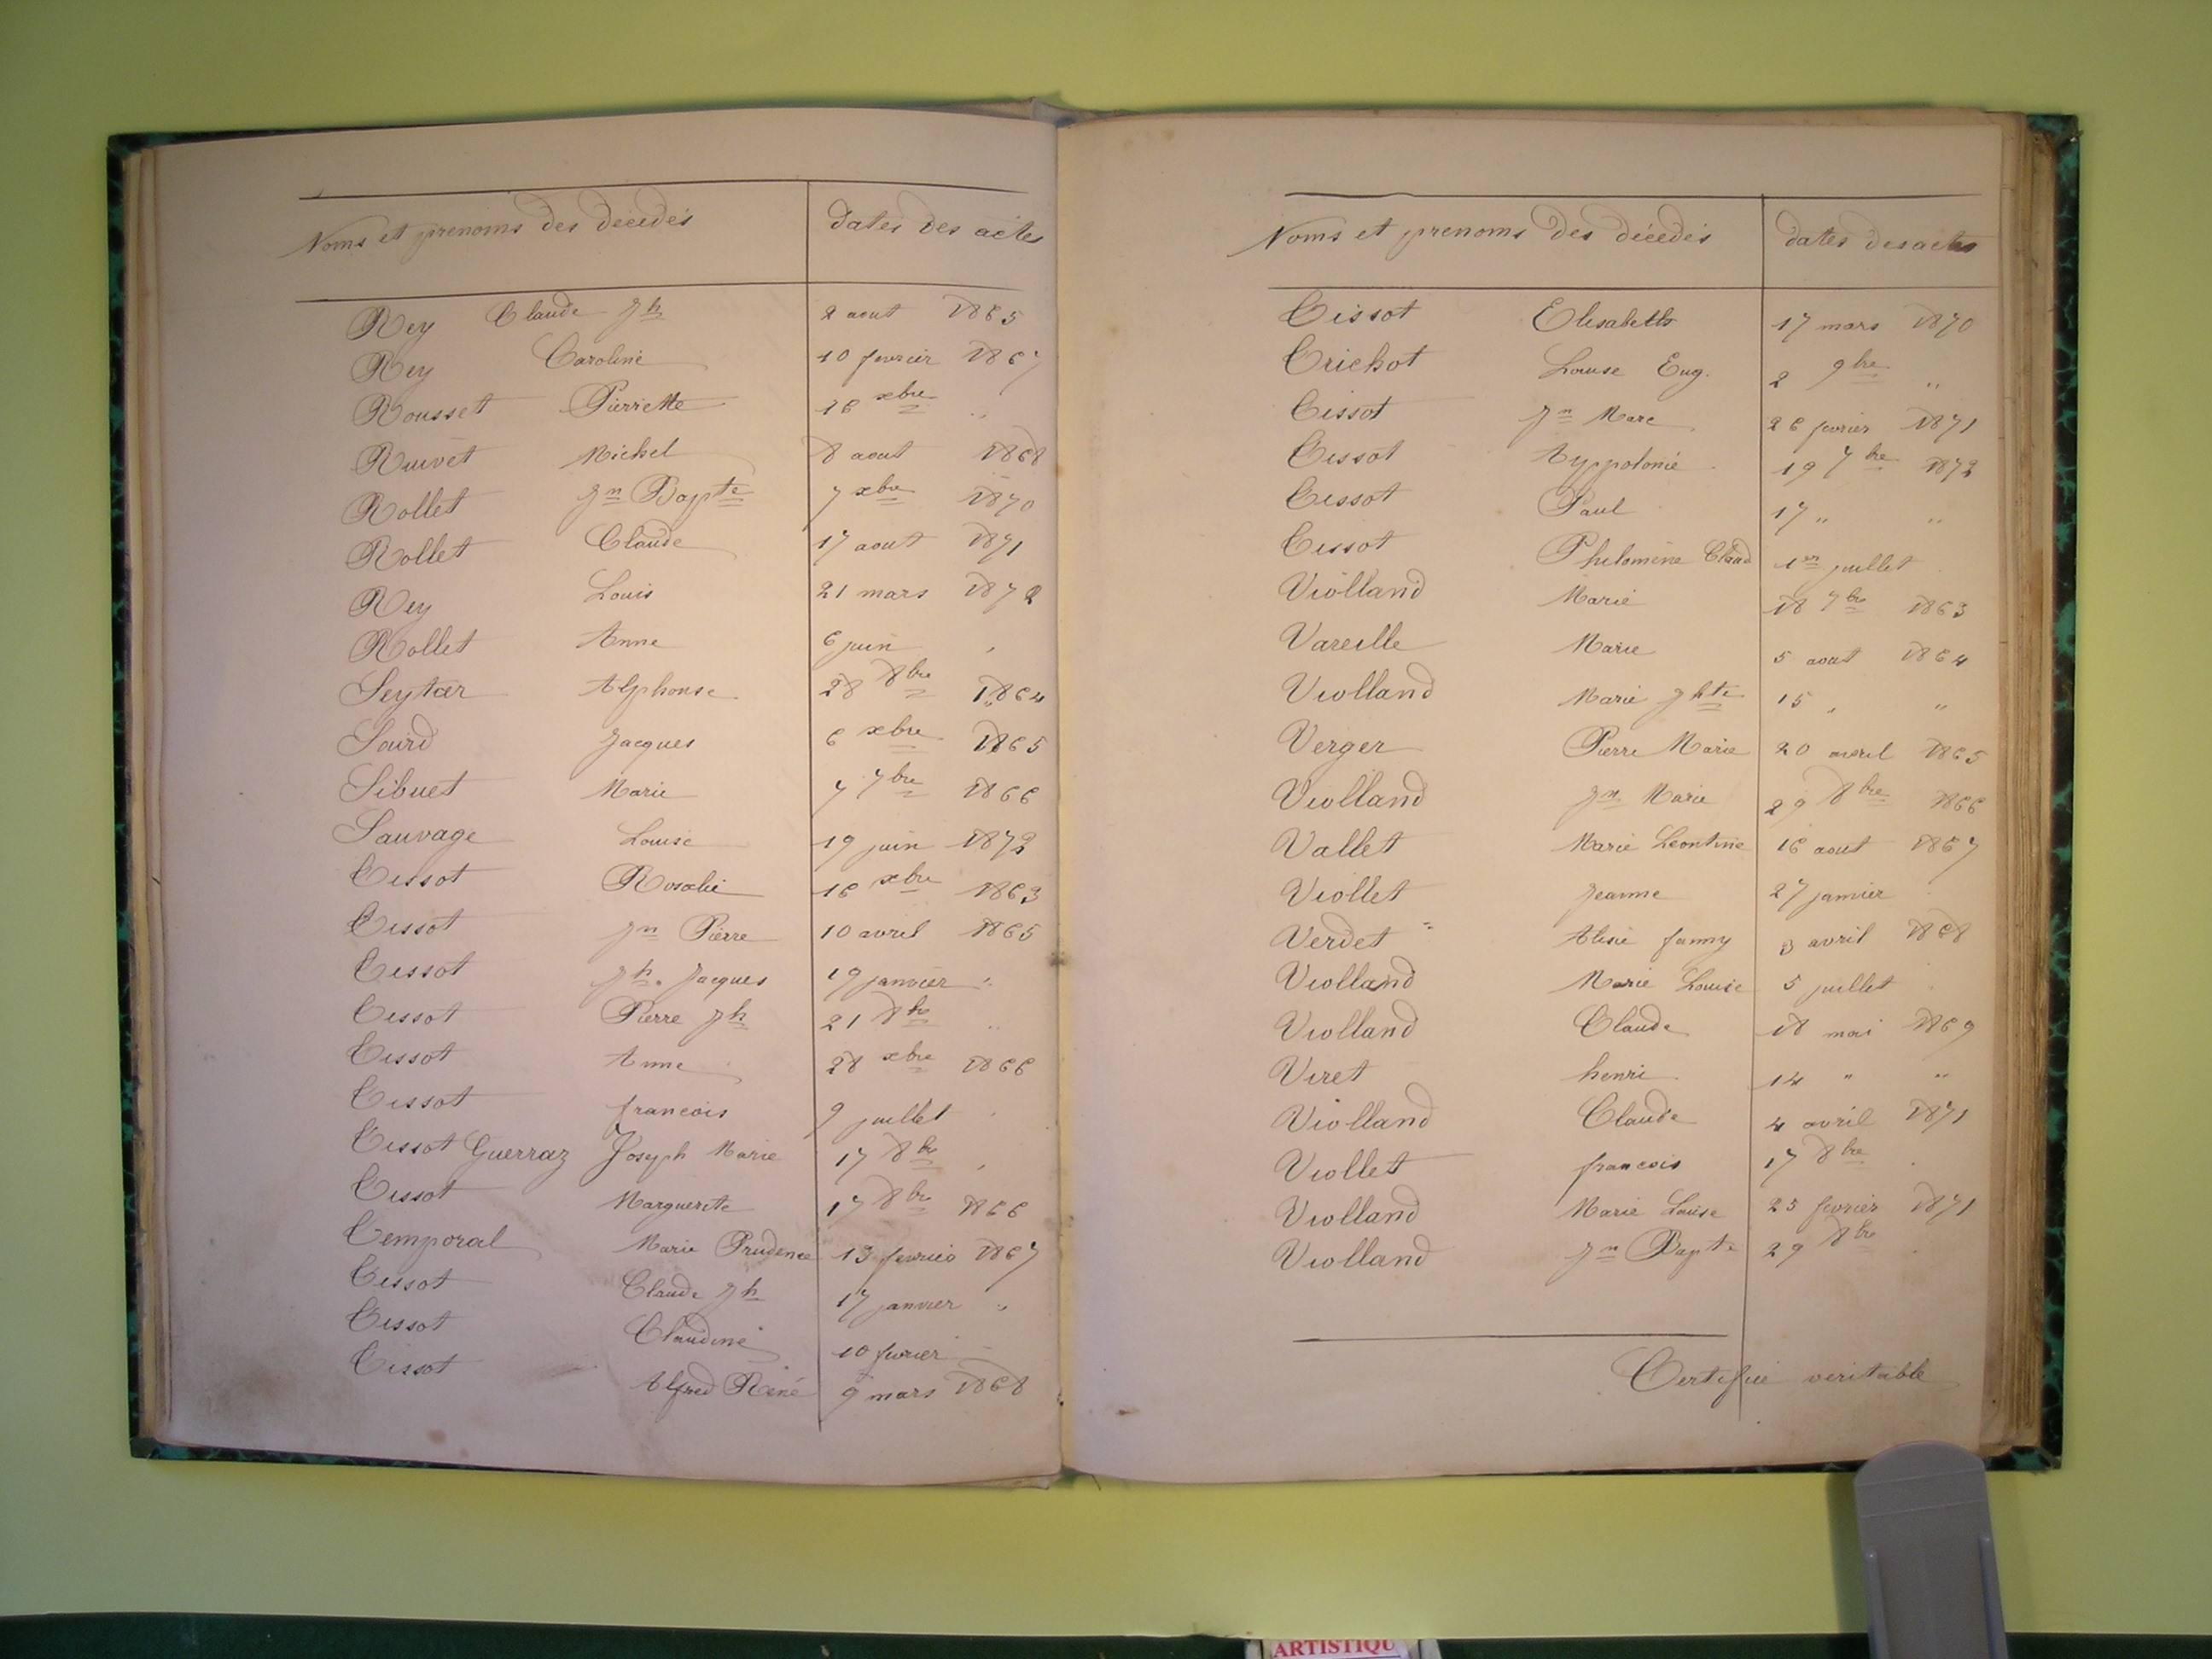 Noms et prenoms des décédés dates des actes
Rey Claude Jh 2 aout 1865
Rey Caroline 10 fevrier 1867
Rousset Pierrette 16 xbre "
Ruivet Michel 8 aout 1868
Rollet Jn Bapte 7 xbre 1870
Rollet Claude 17 aout 1871
Rey Louis 21 mars 1872
Rollet Anne 6 juin "
Seytar Alphonse 28 8bre 1864
Sourd Jacques 6 xbre 1865
Sibuet Marie 7 7bre 1866
Sauvage Louise 19 juin 1872
Tissot Rosalie 16 xbre 1863
Tissot Jn Pierre 10 avril 1865
Tissot Jh. Jacques 19 janvier "
Tissot Pierre Jh 21 8bre "
Tissot Anne 28 xbre 1866
Tissot francois 9 juillet "
Tissot Guerraz Joseph Marie 17 8bre "
Tissot Marguerite 17 8bre 1866
Temporal Marie Prudence 13 fevrier 1867
Tissot Claude Jh 17 janvier "
Tissot Claudine 10 fevrier
Tissot Alfred Réné 9 mars 1868
Noms et prenoms des décédés dates des actes
Tissot Elisabeth 17 mars 1870
Trichot Louise Eug. 2 9bre "
Tissot Jn Marc 26 fevrier 1871
Tissot Appolonie 19 7bre 1872
Tissot Paul 17 " "
Tissot Philomène Claud 1er juillet
Violland Marie 18 7bre 1863
Vareille Marie 5 aout 1864
Violland Marie Jhte 15 " "
Verger Pierre Marie 20 avril 1865
Violland Jn Marie 29 8bre 1866
Vallet Marie Leontine 16 aout 1867
Viollet Jeanne 27 janvier "
Verdet Alisie fanny 3 avril 1868
Violland Marie Louise 5 juillet
Violland Claude 18 mai 1869
Viret henri 14 " "
Violland Claude 4 avril 1871
Viollet francois 17 8bre "
Violland Marie Louise 25 fevrier 1871
Violland Jn Bapte 29 8bre "
Certifié veritable
ARTISTIQU